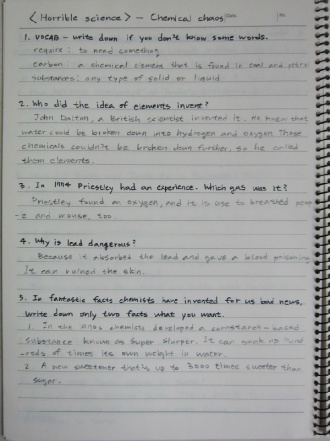 < Horrible science > - Chemical chaos Date No.
1. VOCAB - write down if you don't know some words.
require : to need something
carbon : a chemical element that is found in coal and petrol
substances : any type of solid or liquid
2. Who did the idea of elements invent?
John Dalton, a British scientist invented it. He knew that
water could be broken down into hydrogen and oxygen. Those
chemicals couldn't be broken down further, so he called
them elements.
3. In 1774 Priestley had an experience. Which gas was it?
Priestley found an oxygen, and it is use to breathed peop
-e and mouse, too.
4. Why is lead dangerous?
Because it absorbed the lead and gave a blood poisoning
It can ruined the skin.
5. In fantastic facts chemists have invented for us bad news,
Write down only two facts what you want.
1. In the chemists developed a cornstarch - based
substance known as super slurper. It can soak up hund
-reds of times its own weight in water.
2. A new sweetener that's up to 3000 times sweeter than
sugar.